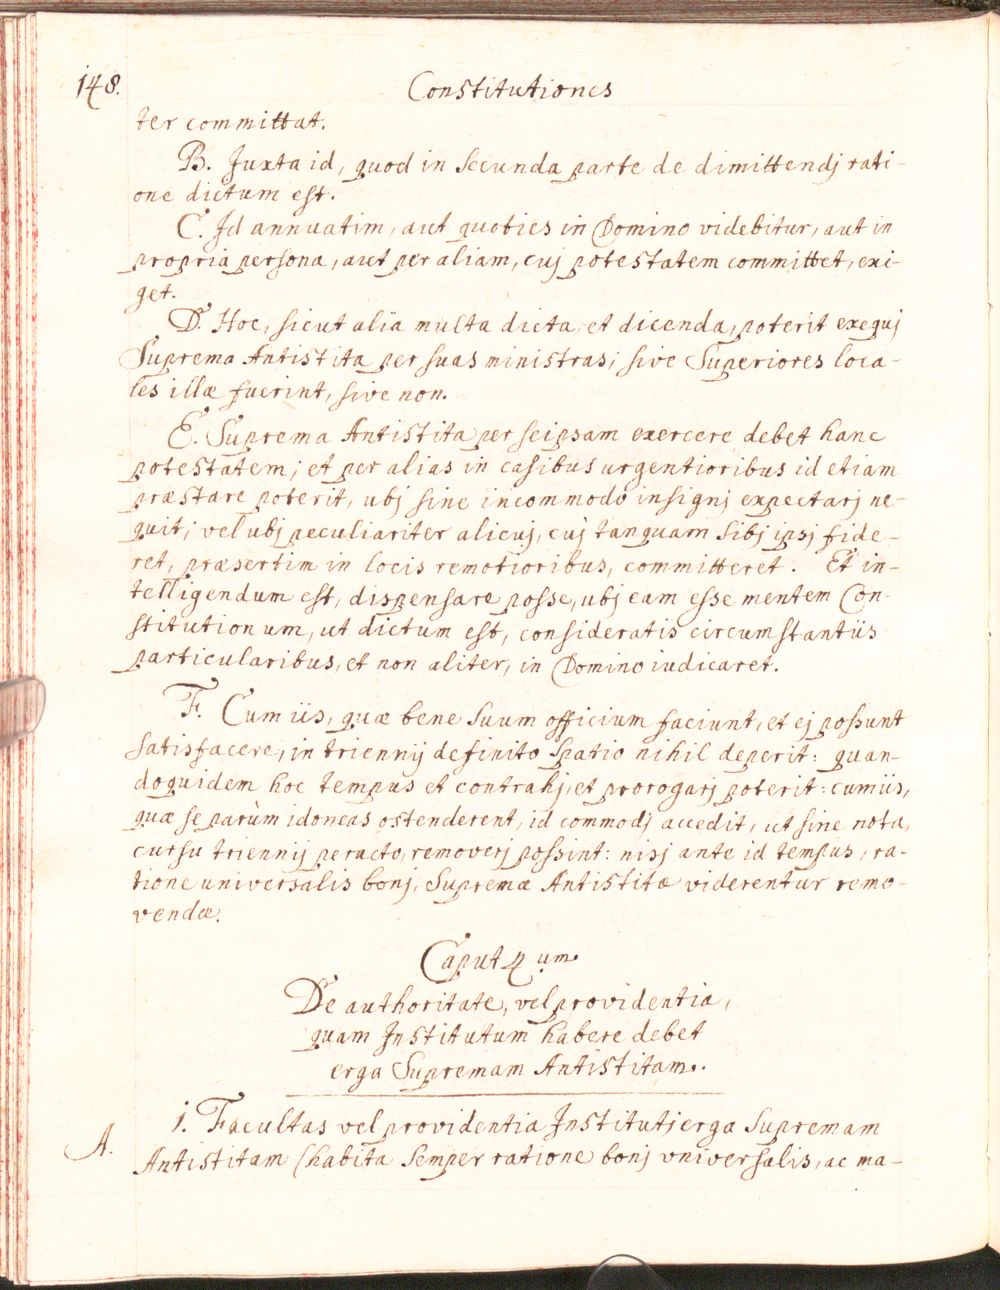 148. Constitutiones
ter committat.
B. Juxta id, quod in secunda parte de dimittendj rati-
one dictum est.
C. Id annuatim, aut quoties in Domino videbitur, aut in
propria persona, aut per aliam, cuj potestatem committet, exi-
get.
D. Hoc, sicut alia multa dicta, et dicenda, poterit exequj
Suprema Antistita per suas ministras; sive Superiores loca-
les illæ fuerint, sive non.
E. Suprema Antistita per seipsam exercere debet hanc
potestatem; et per alias in casibus urgentioribus id etiam
præstare poterit, ubj sine incommodo insignj expectarj ne-
quit; vel ubj peculiariter alicuj, cuj tanquam sibj ipsj fide-
ret, præsertim in locis remotioribus, committeret. Et in-
telligendum est, dispensare posse, ubj eam esse mentem Con-
stitutionum, ut dictum est, consideratis circumstantiis
particularibus, et non aliter, in Domino iudicaret.
F. Cum iis, quæ bene suum officium faciunt, et ej possunt
satisfacere, in triennij definito spatio nihil deperit: quan-
doquidem hoc tempus et contrahj, et prorogarj poterit: cum iis,
quæ se parùm idoneas ostenderent, id commodj accedit, ut sine nota,
cursu triennij peracto, removerj possint: nisj ante id tempus, ra-
tione universalis bonj, Supremæ Antistitæ viderentur remo-
vendæ.
Caput 4um.
De authoritate, vel providentia,
quam Institutum habere debet
erga Supremam Antistitam.
1. Facultas vel providentia Institutj erga Supremam
A. Antistitam (habita semper ratione bonj vniversalis, ac ma-